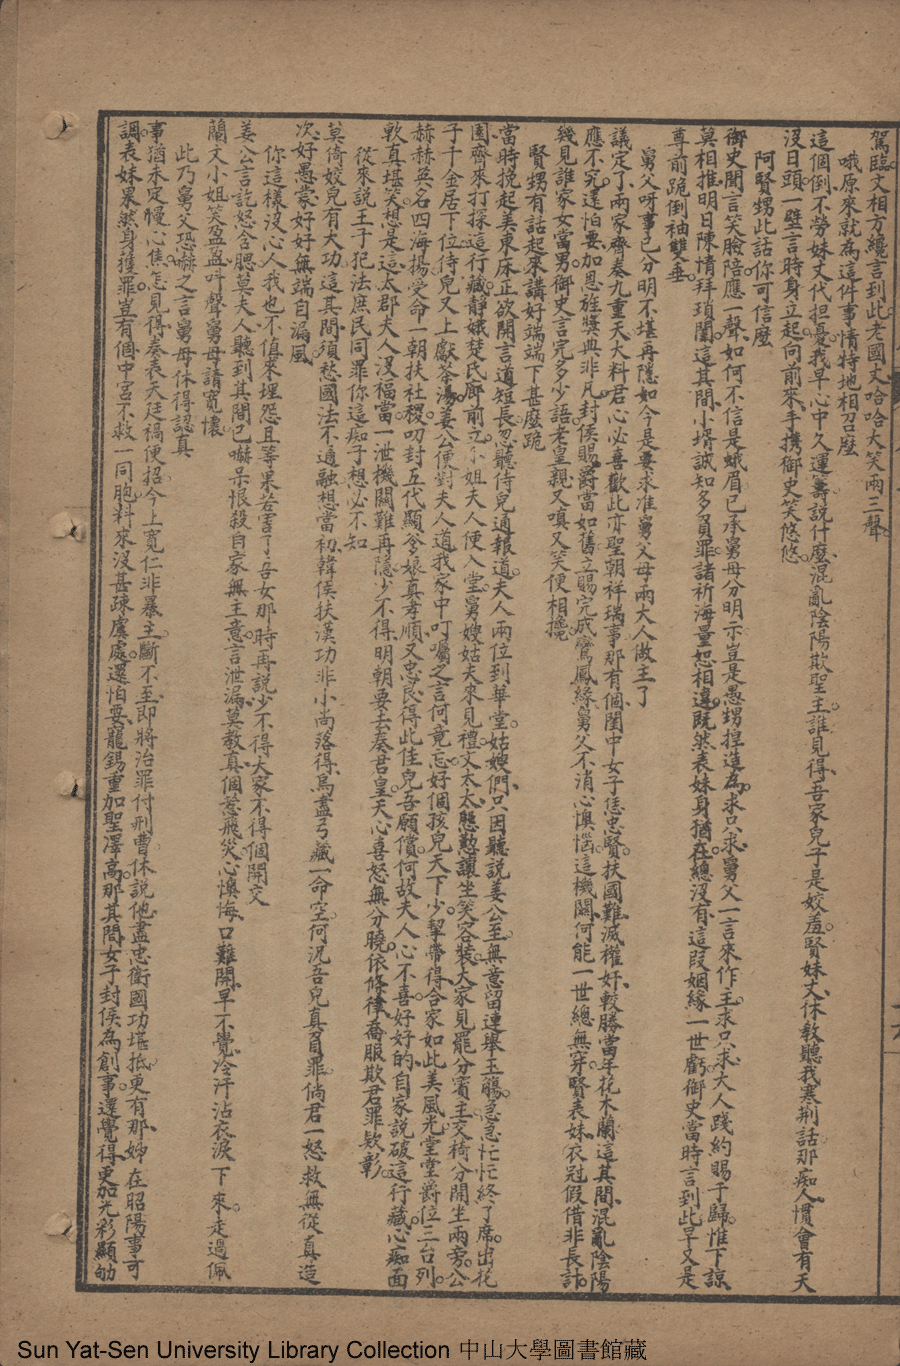 駕臨文相方纔言到此老國丈哈哈大笑兩三聲
哦原來就為這件事情特地相召庅
這個倒不勞妹丈代担憂我早心中久運籌説什麽混亂陰陽欺聖主誰見得吾家兒子是姣羞賢妹丈休教聽我寒荆話那痴人慣會有天
没日頭一壁言時身立起向前來手携御史笑悠悠
阿賢甥此話你可信麽
御史聞言笑臉陪應一聲如何不信是蛾眉已承舅母分明示豈是愚甥捏造為求只求舅父一言來作主求只求大人踐約賜于歸惟下諒
莫相推明日陳情拜瑣闈這其間小壻誠知多負罪諸祈海量恕相違既然表妹身猶在總没有這叚姻緣一世虧御史當時言到此早又是
尊前跪倒袖雙垂
舅父呀事已分明不堪再隱如今是要求准舅父母兩大人做主了
議定了兩家齊奏九重天大料君心必喜歡此亦聖朝祥瑞事那有個閨中女子恁忠賢扶國難滅權奸較勝當年花木蘭這其間混亂陰陽
應不究還怕要加恩旌獎典非凡封侯賜爵當如舊立賜完成鸞鳳緣舅父不消心懊惱這機關何能一世總無穿賢表妹衣冠假借非長計
幾見誰家女當男御史言完多少語老皇親又嗔又笑便相攙
賢甥有話起來講好端端下甚麽跪
當時挽起美東床正欲開言道短長忽聽侍兒通報道夫人兩位到華堂姑嫂們只因聽説姜公至無意留連舉玉觴急急忙忙終了席出花
園齊來打探這行藏靜娥楚氏廊前立小姐夫人便入堂舅嫂姑夫來見禮文太太慇懃讓坐笑容裝大家見罷分賓主交椅分開坐兩旁公
子千金居下位侍兒又上獻茶湯姜公便對夫人道我家中叮囑之言何竟忘好個孩兒天下少挈帶得合家如此美風光堂堂爵位三台列
赫赫英名四海揚受命一朝扶社稷叨封五代顯爹娘真孝順又忠良得此佳兒吾願償何故夫人心不喜好好的自家説破這行藏心痴面
軟真堪笑想是這太郡夫人没福當一泄機關難再隱少不得明朝要去奏君皇天心喜怒無分曉依條律裔服欺君罪欵彰
從來説王子犯法庶民同罪你這痴子想必不知
莫倚姣兒有大功這其間須愁國法不通融想當初韓侯扶漢功非小尚落得鳥盡弓藏一命空何況吾兒真負罪倘君一怒救無從真造
次好愚蒙好好無端自漏風
你這樣没心人我也不值來埋怨且等果若害了吾女那時再説少不得大家不得個開交
姜公言訖怒含腮莫夫人聽到其間已嚇呆恨殺自家無主意言泄漏莫教真個惹飛災心懊悔口難開早不覺冷汗沾衣淚下來走過佩
蘭文小姐笑盈盈呌聲舅母請寬懐
此乃舅父恐嚇之言舅母休得認真
事猶未定慢心焦怎見得奏表天廷禍便招今上寛仁非暴主斷不至即將治罪付刑曹休説他盡忠衛國功堪抵更有那姊在昭陽事可
調表妹果然身獲罪豈有個中宮不救一同胞料來没甚疎虞處還怕要寵錫重加聖澤高那其間女子封侯為創事還覺得更加光彩顯劬
Sun Yat-Sen University Library Collection 中山大學圖書館藏